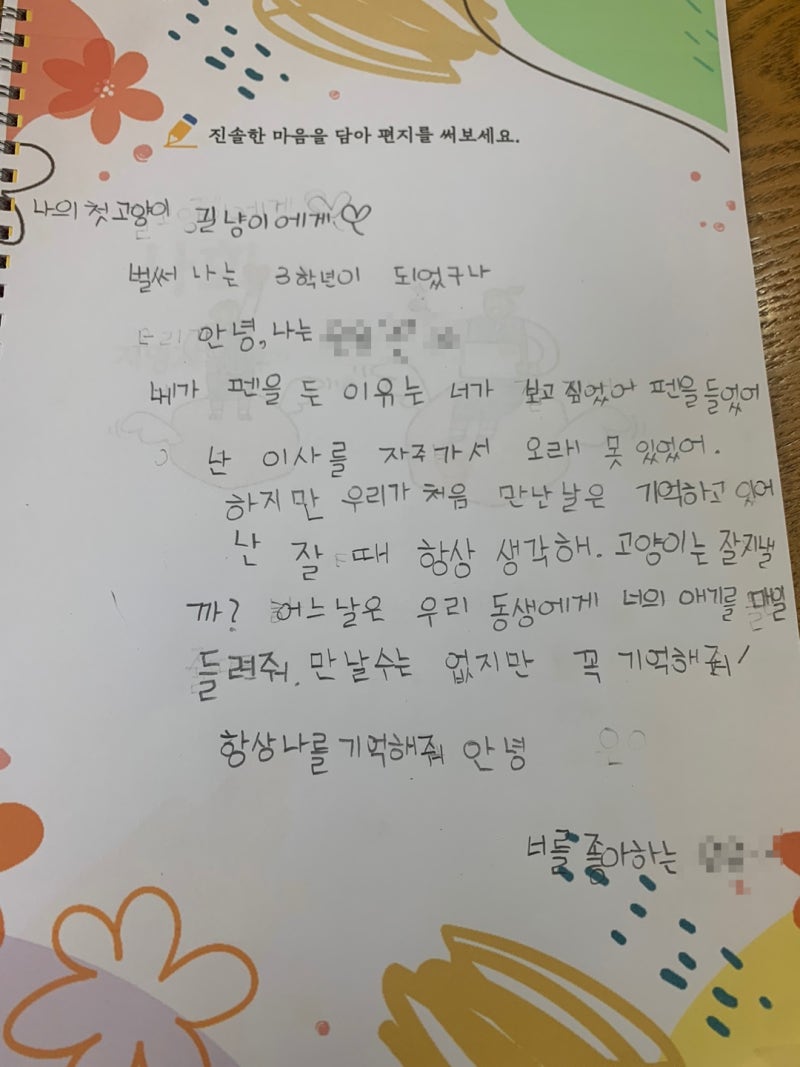 진솔한 마음을 담아 편지를 써보세요.
나의 첫 고양이 길냥이에게
벌써 나는 3학년이 되었구나
안녕, 나는
베가 펜을 둔 이유는 너가 보고 싶었어 펜을 들었어
난 이사를 자주가서 오래 못 있었어.
하지만 우리가 처음 만난 날은 기억하고 있어
난 잘 때 항상 생각해. 고양이는 잘 지낼
까? 어느날은 우리 동생에게 너의 얘기를 매일
들려줘. 만날수는 없지만 꼭 기억해줘!
항상 나를 기억해줘 안녕
너를 좋아하는